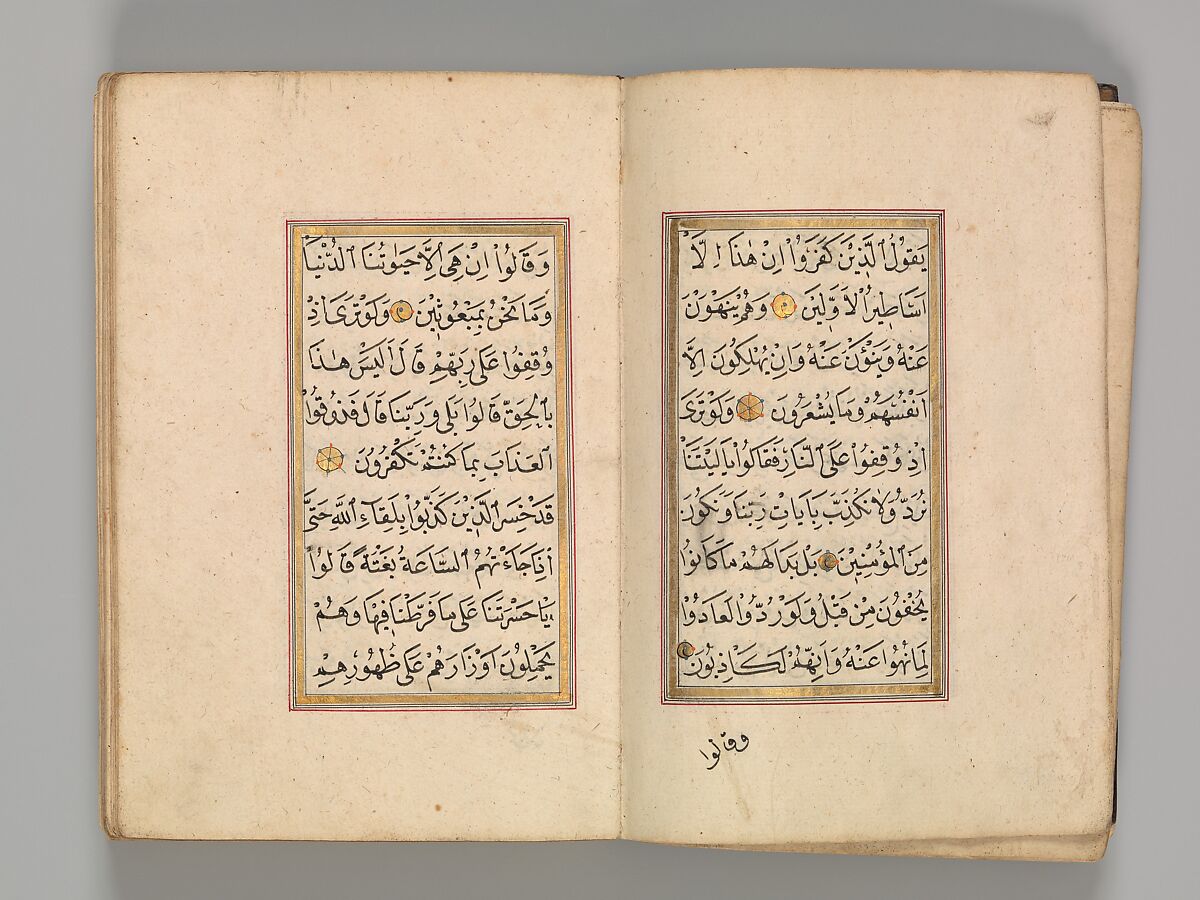 يَقُولُ الَّذِينَ كَفَرُوا اِنْ هٰذَا اِلَّا
اَسَاطِيرُ الْاَوَّلِينَ وَهُمْ يَنْهَوْنَ
عَنْهُ وَيَنْؤُنَ عَنْهُ وَاِنْ يُهْلِكُونَ اِلَّا
اَنْفُسَهُمْ وَمَا يَشْعُرُونَ وَلَوْ تَرَى
اِذْ وُقِفُوا عَلَى النَّارِ فَقَالُوا يَا لَيْتَنَا
نُرَدُّ وَلَا نُكَذِّبَ بِاٰيَاتِ رَبِّنَا وَنَكُونَ
مِنَ الْمُؤْمِنِينَ بَلْ بَدَا لَهُمْ مَا كَانُوا
يُخْفُونَ مِنْ قَبْلُ وَلَوْ رُدُّوا لَعَادُوا
لِمَا نُهُوا عَنْهُ وَاِنَّهُمْ لَكَاذِبُونَ
وقالوا
وَقَالُوا اِنْ هِيَ اِلَّا حَيٰوتُنَا الدُّنْيَا
وَمَا نَحْنُ بِمَبْعُوثِينَ وَلَوْ تَرَى اِذْ
وُقِفُوا عَلَى رَبِّهِمْ قَالَ اَلَيْسَ هٰذَا
بِالْحَقِّ قَالُوا بَلَى وَرَبِّنَا قَالَ فَذُوقُوا
الْعَذَابَ بِمَا كُنْتُمْ تَكْفُرُونَ
قَدْ خَسِرَ الَّذِينَ كَذَّبُوا بِلِقَاءِ اللّٰهِ حَتَّى
اِذَا جَاءَتْهُمُ السَّاعَةُ بَغْتَةً قَالُوا
يَا حَسْرَتَنَا عَلَى مَا فَرَّطْنَا فِيهَا وَهُمْ
يَحْمِلُونَ اَوْزَارَهُمْ عَلَى ظُهُورِهِمْ